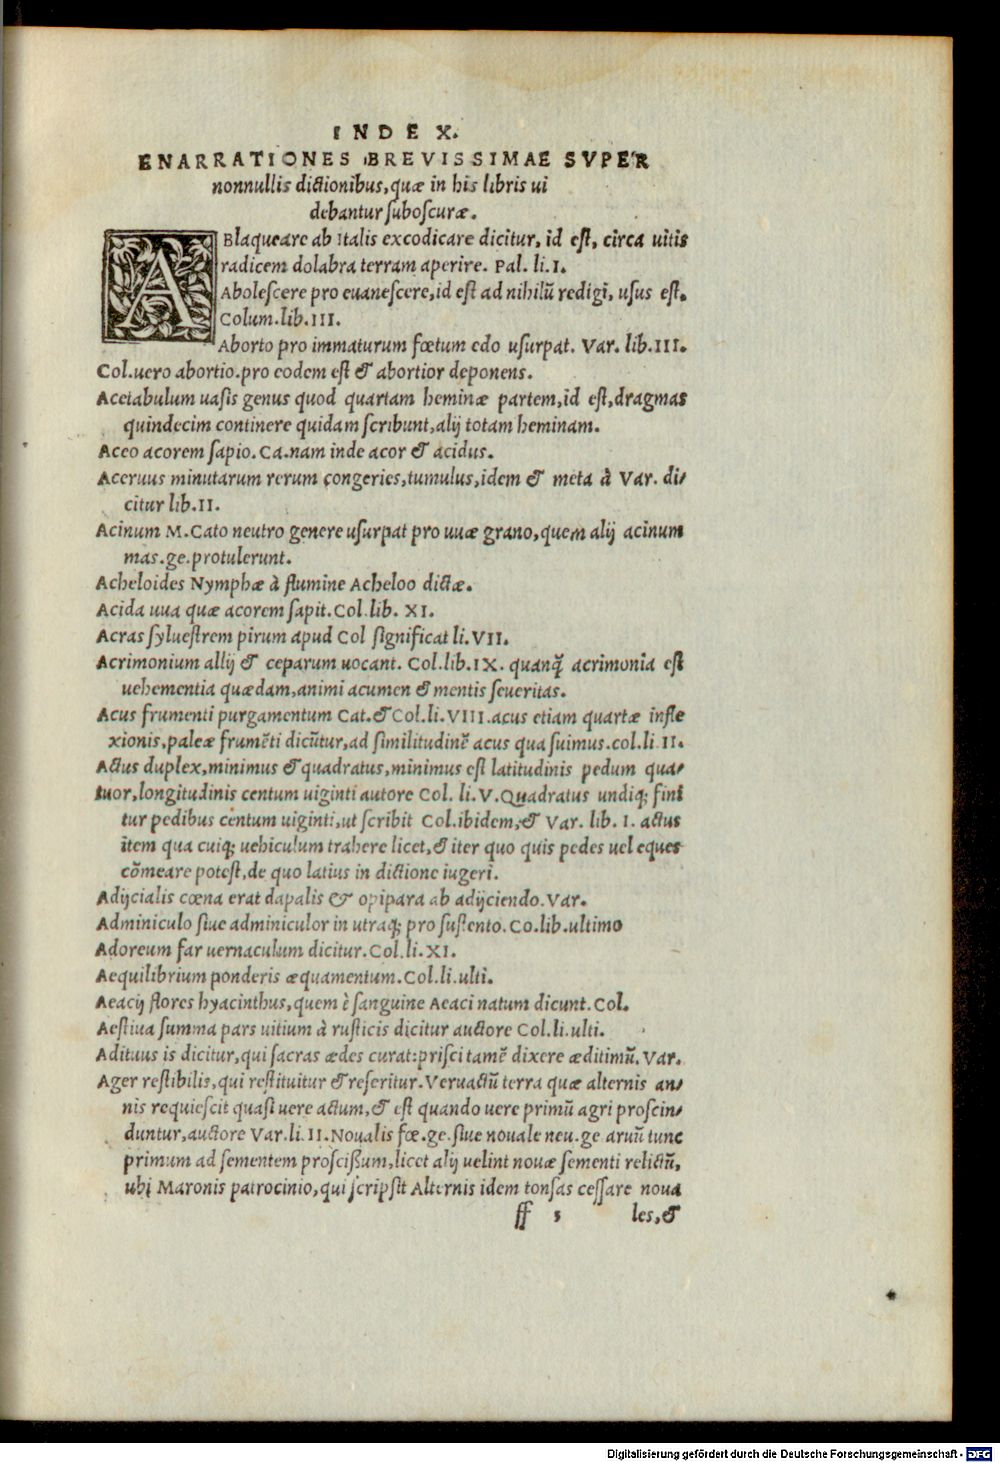 INDEX.
ENARRATIONES BREVISSIMAE SVPER
nonnullis dictionibus, quæ in his libris ui
debantur suboscuræ.
ABlaqueare ab Italis excodicare dicitur, id est, circa uitis
radicem dolabra terram aperire. Pal. li. I.
Abolescere pro euanescere, id est ad nihilũ redigi, usus est.
Colum. lib. III.
Aborto pro immaturum fœtum edo usurpat. Var. lib. III.
Col. uero abortio. pro eodem est & abortior deponens.
Acetabulum uasis genus quod quartam heminæ partem, id est, dragmas
quindecim continere quidam scribunt, alij totam heminam.
Aceo acorem sapio. Ca. nam inde acor & acidus.
Aceruus minutarum rerum congeries, tumulus, idem & meta à Var. di/
citur lib. II.
Acinum M. Cato neutro genere usurpat pro uuæ grano, quem alij acinum
mas. ge. protulerunt.
Acheloides Nymphæ à flumine Acheloo dictæ.
Acida uua quæ acorem sapit. Col. lib. XI.
Acras syluestrem pirum apud Col significat li. VII.
Acrimonium allij & ceparum uocant. Col. lib. IX. quanq̃ acrimonia est
uehementia quædam, animi acumen & mentis seueritas.
Acus frumenti purgamentum Cat. & Col. li. VIII. acus etiam quartæ infle
xionis, paleæ frumẽti dicũtur, ad similitudinẽ acus qua suimus. col. li. II.
Actus duplex, minimus & quadratus, minimus est latitudinis pedum qua/
tuor, longitudinis centum uiginti autore Col. li. V. Quadratus undiq; fini
tur pedibus centum uiginti, ut scribit Col. ibidem, & Var. lib. I. actus
item qua cuiq; uehiculum trahere licet, & iter quo quis pedes uel eques
cõmeare potest, de quo latius in dictione iugeri.
Adijcialis cœna erat dapalis & opipara ab adijciendo. Var.
Adminiculo siue adminiculor in utraq; pro sustento. Co. lib. ultimo
Adoreum far uernaculum dicitur. Col. li. XI.
Aequilibrium ponderis æquamentum. Col. li. ulti.
Aeacij flores hyacinthus, quem è sanguine Aeaci natum dicunt. Col.
Aestiua summa pars uitium à rusticis dicitur auctore Col. li. ulti.
Adituus is dicitur, qui sacras ædes curat: prisci tamẽ dixere æditimũ. Var.
Ager restibilis, qui restituitur & reseritur. Veruactũ terra quæ alternis an/
nis requiescit quasi uere actum, & est quando uere primũ agri proscin/
duntur, auctore Var. li. II. Noualis fœ. ge. siue nouale neu. ge aruũ tunc
primum ad sementem proscißum, licet alij uelint nouæ sementi relictũ,
ubi Maronis patrocinio, qui scripsit Alternis idem tonsas cessare noua
ff 5 les, &
Digitalisierung gefördert durch die Deutsche Forschungsgemeinschaft - DFG